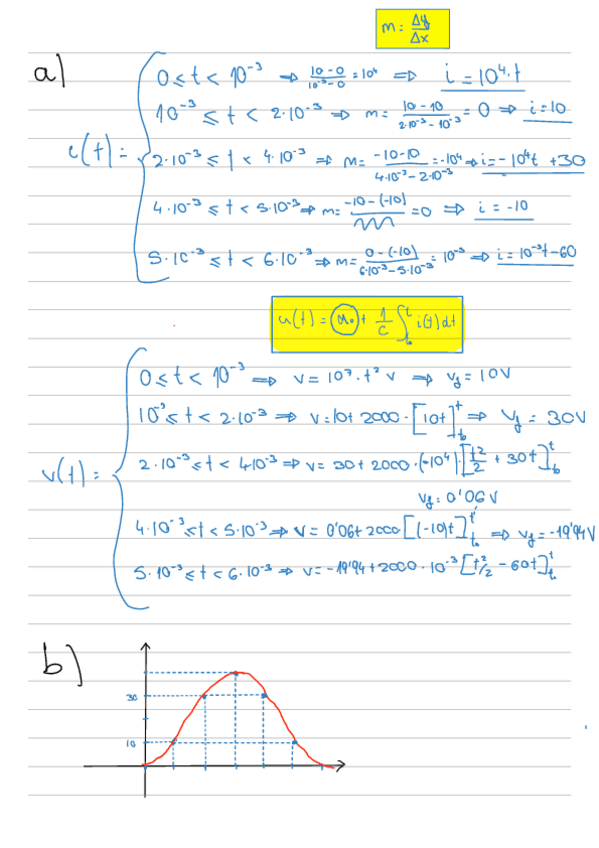 m = Δy/Δx
a)
i(t) =
0 ≤ t < 10⁻³ ⇒ 10-0/10⁻³-0 = 10⁴ ⇒ i = 10⁴·t
10⁻³ ≤ t < 2·10⁻³ ⇒ m = 10-10/2·10⁻³-10⁻³ = 0 ⇒ i = 10
2·10⁻³ ≤ t < 4·10⁻³ ⇒ m = -10-10/4·10⁻³-2·10⁻³ = -10⁴ ⇒ i = -10⁴t + 30
4·10⁻³ ≤ t < 5·10⁻³ ⇒ m = -10-(-10)/ = 0 ⇒ i = -10
5·10⁻³ ≤ t < 6·10⁻³ ⇒ m = 0-(-10)/6·10⁻³-5·10⁻³ = 10⁻³ ⇒ i = 10⁻³t - 60
u(t) = u₀ + 1/C ∫ₜ₀ᵗ i(t) dt
v(t) =
0 ≤ t < 10⁻³ ⇒ v = 10⁷·t² v ⇒ v_f = 10V
10⁻³ ≤ t < 2·10⁻³ ⇒ v = 10 + 2000·[10t]ₜ₀ᵗ ⇒ v_f = 30V
2·10⁻³ ≤ t < 4·10⁻³ ⇒ v = 30 + 2000·(-10⁴)·[t²/2 + 30t]ₜ₀ᵗ
v_f = 0'06 V
4·10⁻³ ≤ t < 5·10⁻³ ⇒ v = 0'06 + 2000·[(-10)t]ₜ₀ᵗ ⇒ v_f = -19'94V
5·10⁻³ ≤ t < 6·10⁻³ ⇒ v = -19'94 + 2000·10⁻³[t²/2 - 60t]ₜ₀ᵗ
b)
30
10